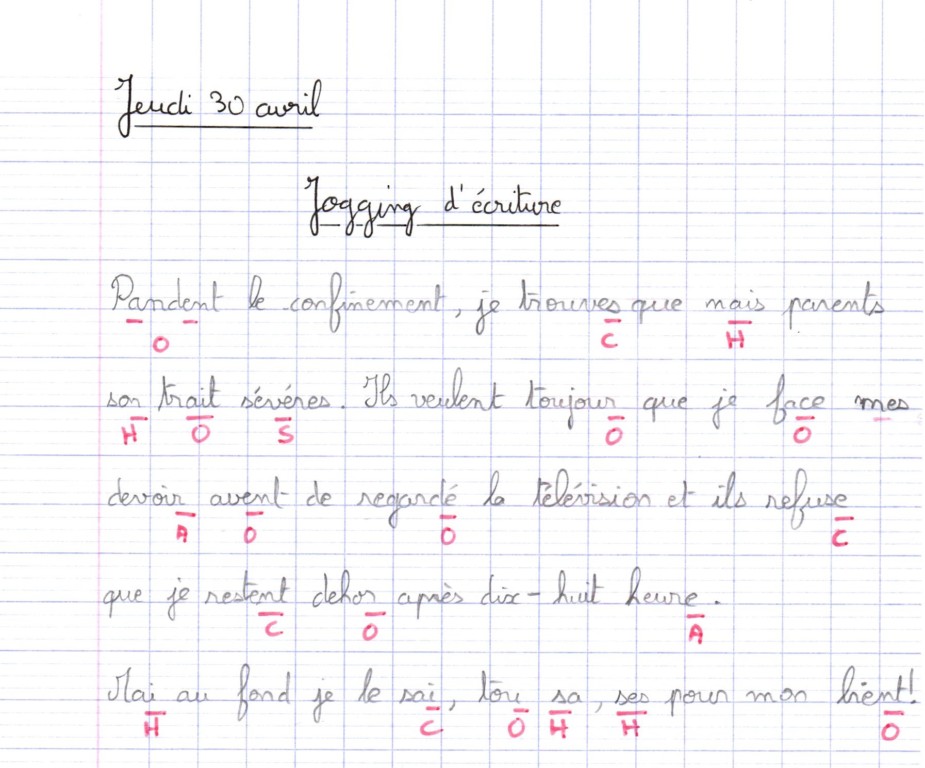 Jeudi 30 avril
Jogging d'écriture
Pandent le confinement, je trouves que mais parents
O C H
son trait sévéres. Ils veulent toujour que je face mes
H O S O O
devoir avent de regardé la télévision et ils refuse
A O O C
que je restent dehor après dix-huit heure.
C O A
Mai au fond je le sai, tou sa, ses pour mon bient!
H C O H H O